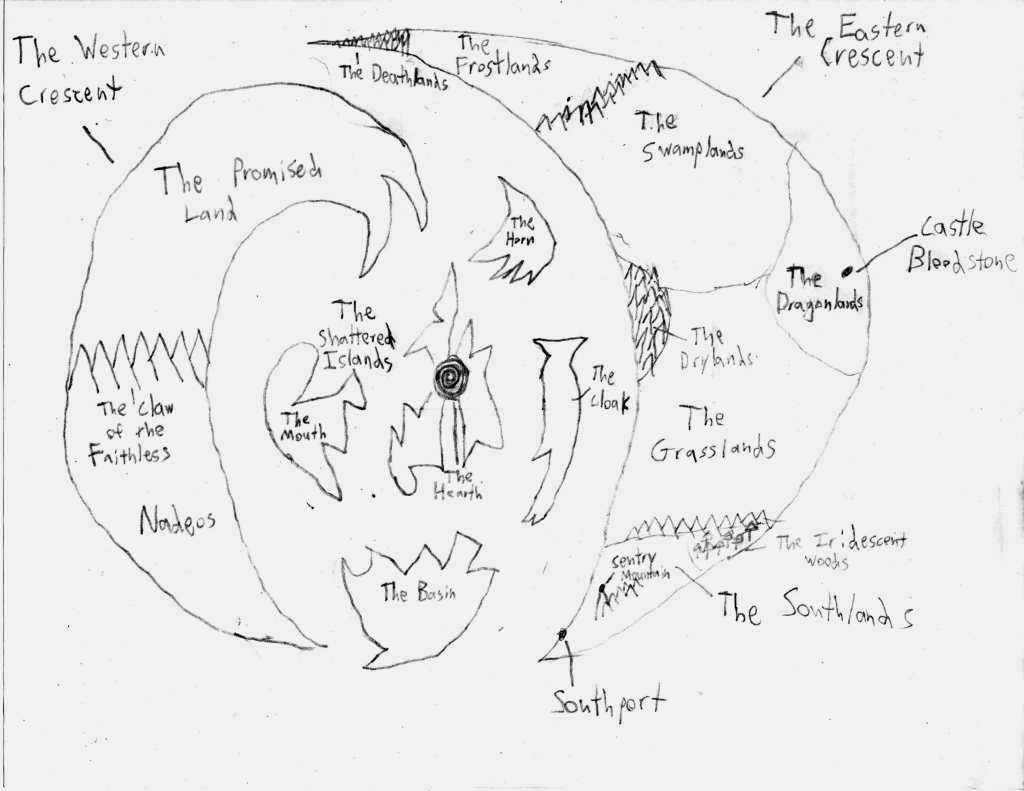 The Western
Crescent
The Deathlands
The
Frostlands
The Eastern
Crescent
The
Swamplands
The Promised
Land
The
Horn
Castle
Bloodstone
The
Dragonlands
The
Shattered
Islands
The
Drylands
The
Cloak
The Claw
of the
Faithless
The
Mouth
The
Grasslands
The
Hearth
Nadeos
The Iridescent
Woods
Sentry
Mountain
The Basin
The Southlands
Southport